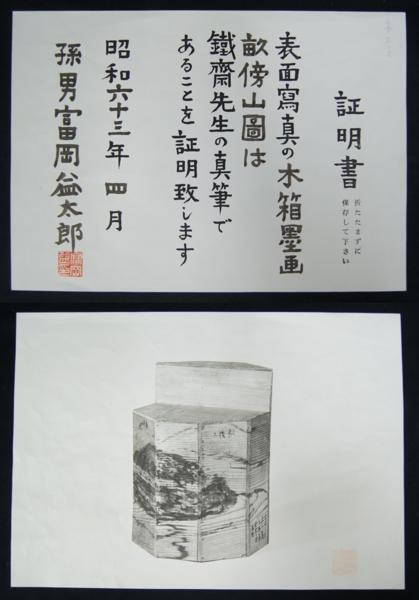 証明書
折たたまずに
保存して下さい
表面寫真の木箱墨画
畝傍山圖は
鐵齋先生の真筆で
あることを証明致します
昭和六十三年 四月
孫男富岡益太郎